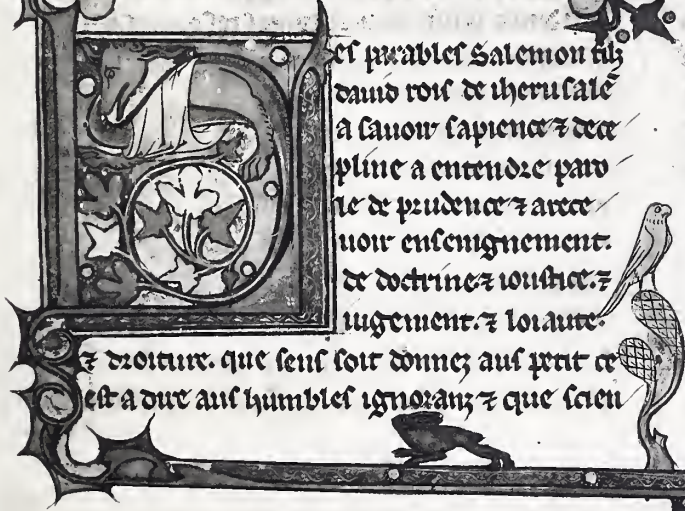 Les parables Salemon filz
dauid rois de iherusalē
a sauoir sapience ⁊ dece
pline a entendre paro
le de prudence ⁊ a rece
uoir enseingnement.
de doctrine ⁊ ioustice. ⁊
iugement. ⁊ loiaute.
⁊ droiture. que sens soit donnez aus petit ce
est a dire aus humbles ignoranz ⁊ que scien